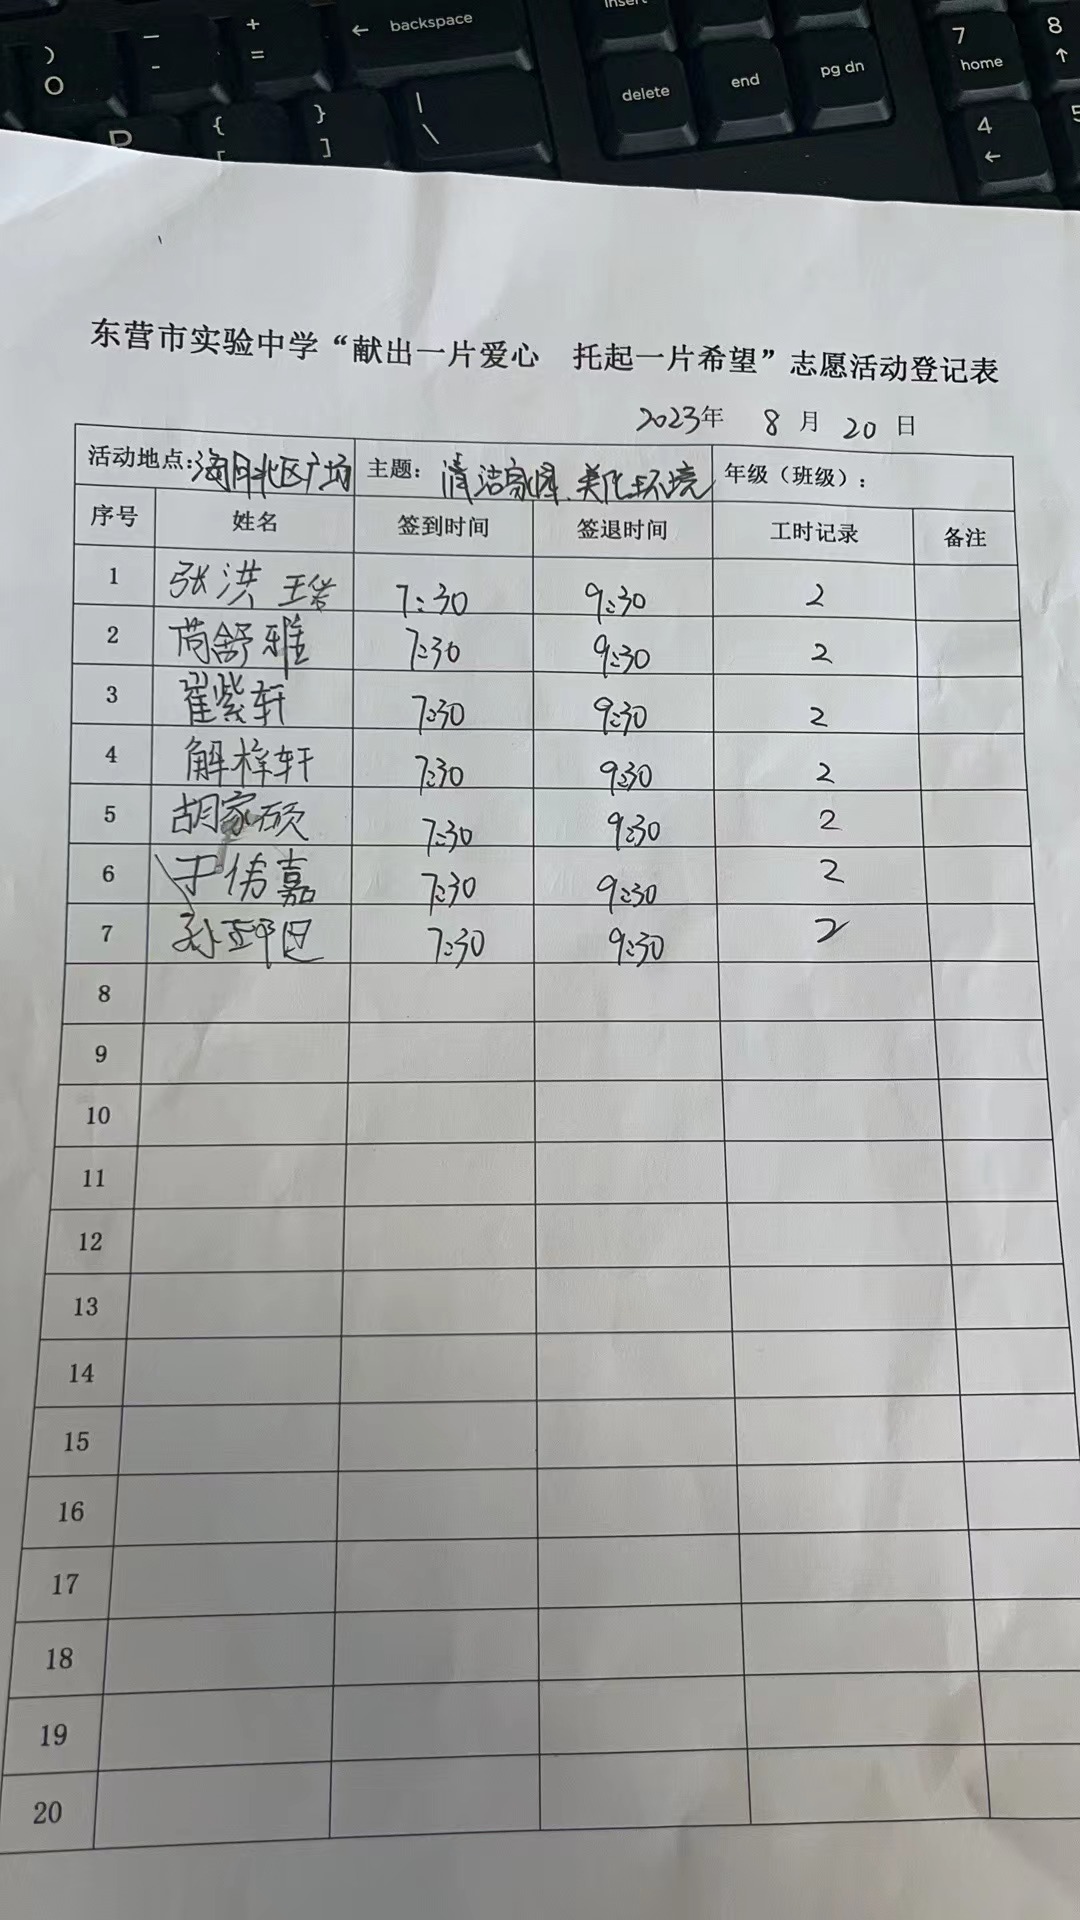 ) _ + ← backspace insert 7 8
0 - = delete end pg dn home ↑
P { } | 4 5
[ ] \ ←
东营市实验中学“献出一片爱心 托起一片希望”志愿活动登记表
2023年 8 月 20 日
活动地点:海月北区广场 主题: 清洁家园、美化环境 年级（班级）:
序号 姓名 签到时间 签退时间 工时记录 备注
1 张洪 7:30 9:30 2
2 舒雅 7:30 9:30 2
3 翟紫轩 7:30 9:30 2
4 解梓轩 7:30 9:30 2
5 胡家硕 7:30 9:30 2
6 于倩嘉 7:30 9:30 2
7 孙 7:30 9:30 2
8
9
10
11
12
13
14
15
16
17
18
19
20